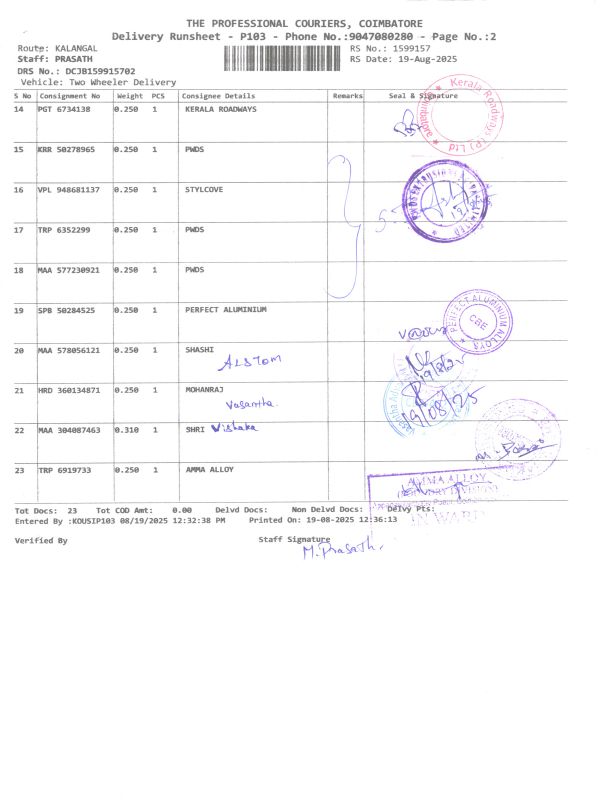 THE PROFESSIONAL COURIERS, COIMBATORE
Delivery Runsheet - P103 - Phone No.:9047080280 - Page No.:2
Route: KALANGAL RS No.: 1599157
Staff: PRASATH RS Date: 19-Aug-2025
DRS No.: DCJB159915702
Vehicle: Two Wheeler Delivery
S No Consignment No Weight PCS Consignee Details Remarks Seal & Signature
14 PGT 6734138 0.250 1 KERALA ROADWAYS
Kerala Roadways (P) Ltd
15 KRR 50278965 0.250 1 PWDS
16 VPL 948681137 0.250 1 STYLCOVE
17 TRP 6352299 0.250 1 PWDS
18 MAA 577230921 0.250 1 PWDS
19 SPB 50284525 0.250 1 PERFECT ALUMINIUM
PERFECT ALUMINIUM ALLOYS
CBE
20 MAA 578056121 0.250 1 SHASHI
ALSTOM
19/8/25
21 HRD 360134871 0.250 1 MOHANRAJ
Vasantha.
19/08/25
22 MAA 304087463 0.310 1 SHRI Vishaka
23 TRP 6919733 0.250 1 AMMA ALLOY
AMMA ALLOY
INWARD
Tot Docs: 23 Tot COD Amt: 0.00 Delvd Docs: Non Delvd Docs: Delvy Pts:
Entered By :KOUSIP103 08/19/2025 12:32:38 PM Printed On: 19-08-2025 12:36:13
Verified By Staff Signature
M.Prasath.